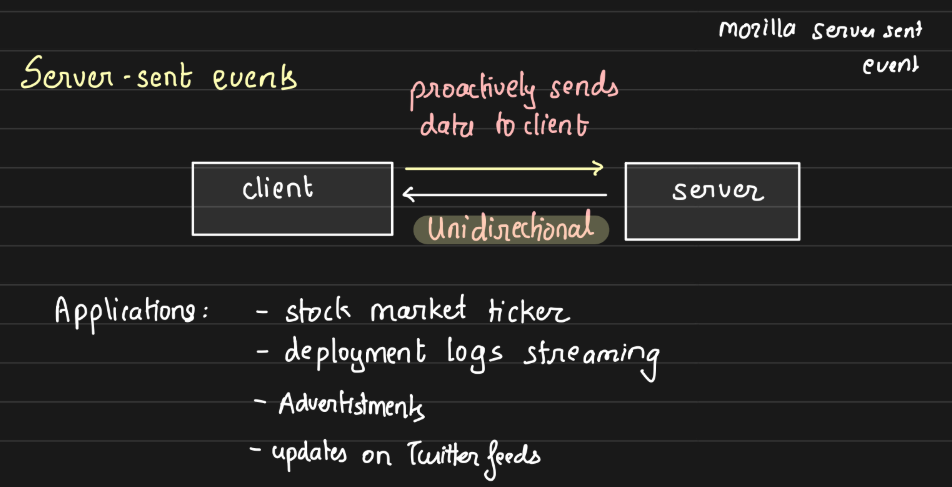 mozilla server sent
event
Server-sent events
proactively sends
data to client
client
server
Unidirectional
Applications: - stock market ticker
- deployment logs streaming
- Advertistments
- updates on Twitter feeds